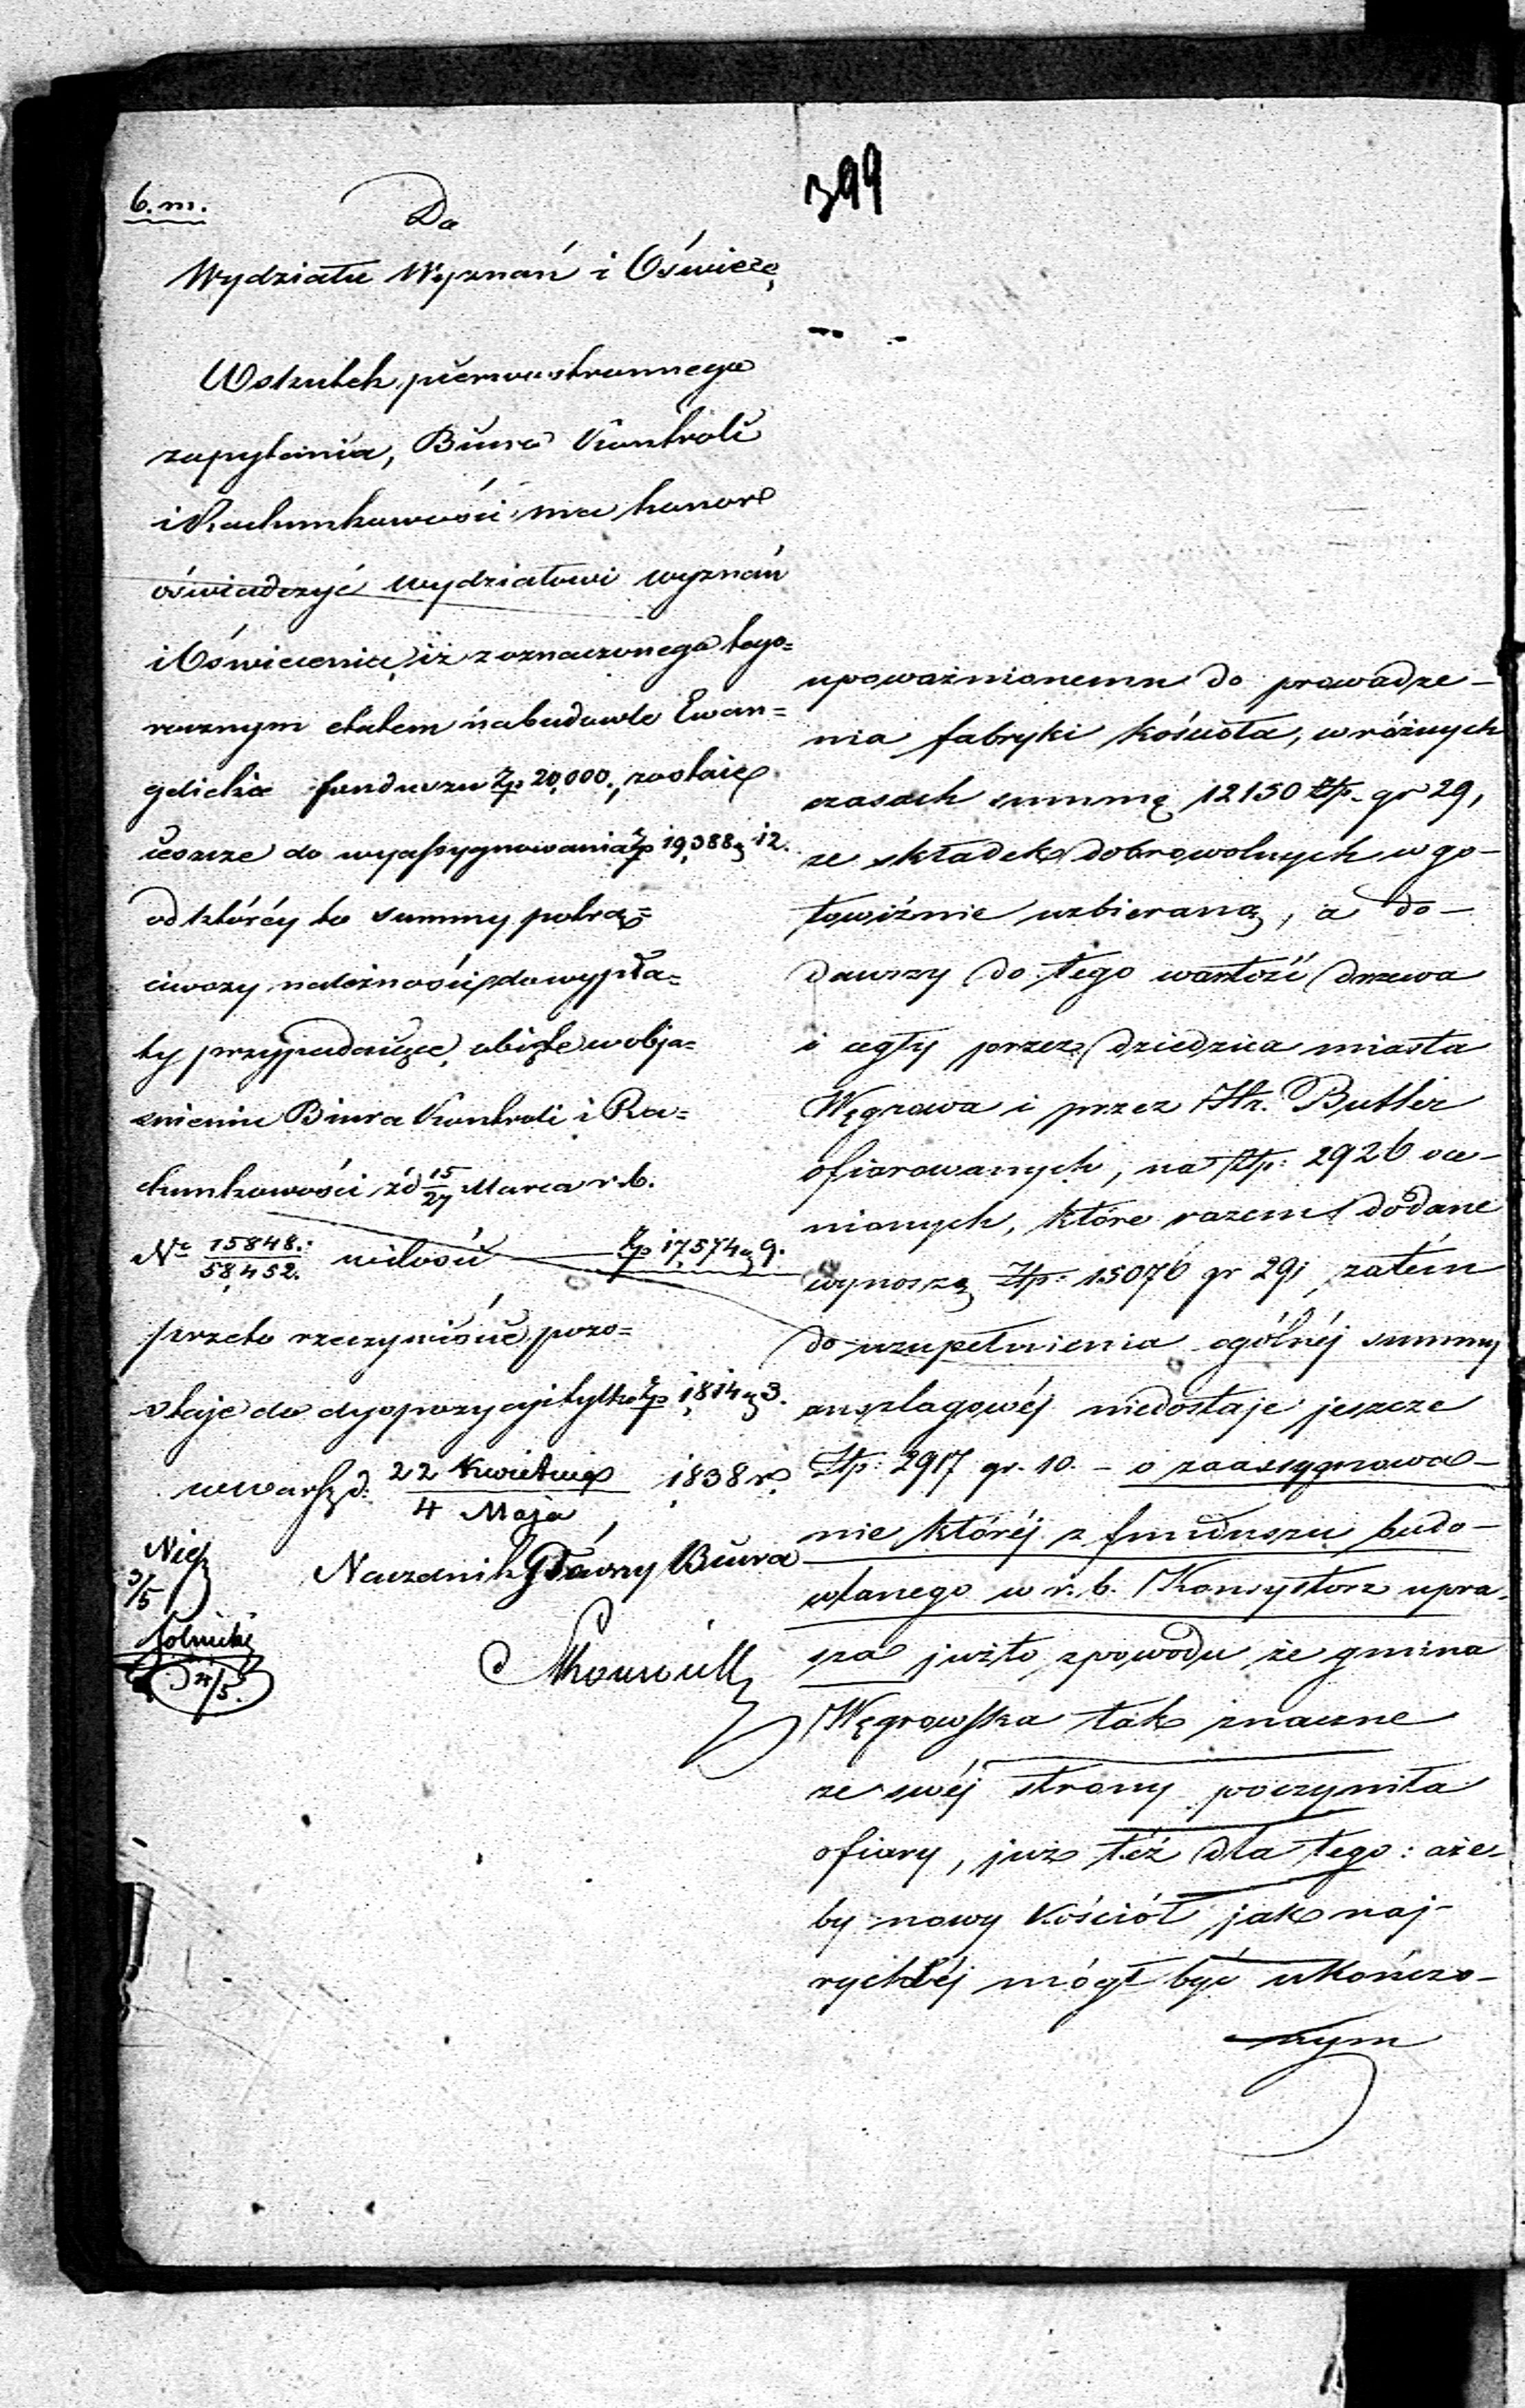 399
6. m.
Do
Wydziału Wyznań i Oświece
Wskutek pierwostronnego
zapytania, Biuro Kontroli
i Rachunkowości ma honor
oświadczyć Wydziałowi wyznań
i Oświecenia, iż z oznaczonego tego=
rocznym etatem na budowle Ewan=
gelickie funduszu Zp 20,000, zostaie
ieszcze do wyassygnowania Zp 19,388 g 12.
od któréy to summy potrą=
ciwszy należności do wypła=
ty przypadaiące, obięte w obja=
śnieniu Biura Kontroli i Ra=
chunkowości z d 15/27 Marca r. b.
Nr 15848./58,452. w ilości Zp 17,574 g 9.
przeto rzeczywiście pozo=
staje do dyspozycyi tylko Zp 1,814 g 3.
w Warsz. d. 22 Kwietnia/4 Maja 1838 r.
Naczelnik Główny Biura
3/5
4/5.
upoważnionemu do prowadze-
nia fabryki kościoła, w różnych
czasach summę 12150 Złp. gr 29,
ze składek dobrowolnych w go-
towiźnie uzbieraną, a do-
dawszy do tego wartość drzewa
i cegły przez dziedzica miasta
Węgrowa i przez Hr. Butler
ofiarowanych, na Złp: 2926 oce-
nionych, które razem dodane
wynoszą Złp: 15076 gr 29, zatém
do uzupełnienia ogólnéj summy
anszlagowéj niedostaje jeszcze
Złp: 2917 gr. 10. - o zaasygnowa-
nie któréj z funduszu budo-
wlanego w r. b. Konsystorz upra-
sza już to z powodu, że gmina
Węgrowska tak znaczne
ze swéj strony poczyniła
ofiary, już téż dla tego: aże-
by nowy Kościół jak naj-
rychléj mógł być ukończo-
nym